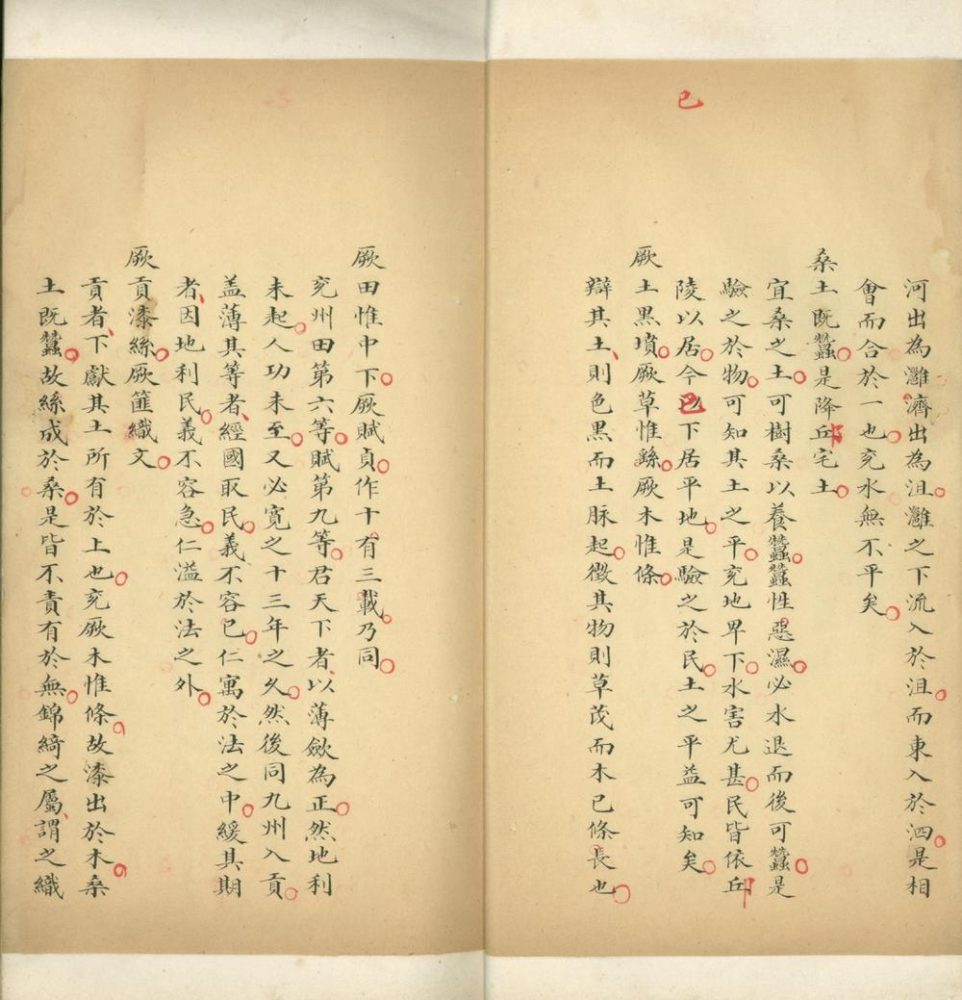 已
河出為灉濟出為沮灉之下流入於沮而東入於泗是相
會而合於一也兖水無不平矣
桑土既蠶是降丘宅土
宜桑之土可樹桑以養蠶蠶性惡濕必水退而後可蠶是
驗之於物可知其土之平兖地卑下水害尤甚民皆依丘
陵以居今已下居平地是驗之於民土之平益可知矣
厥土黒墳厥草惟繇厥木惟條
辯其土則色黒而土脉起徵其物則草茂而木已條長也
厥田惟中下厥賦貞作十有三載乃同
兖州田第六等賦第九等君天下者以薄斂為正然地利
未起人功未至又必寛之十三年之乆然後同九州入貢
盖薄其等者經國取民義不容已仁寓於法之中緩其期
者因地利民義不容急仁溢於法之外
厥貢漆絲厥篚織文
貢者下獻其土所有於上也兖厥木惟條故漆出於木桑
土既蠶故絲成於桑是皆不責有於無錦綺之屬謂之織